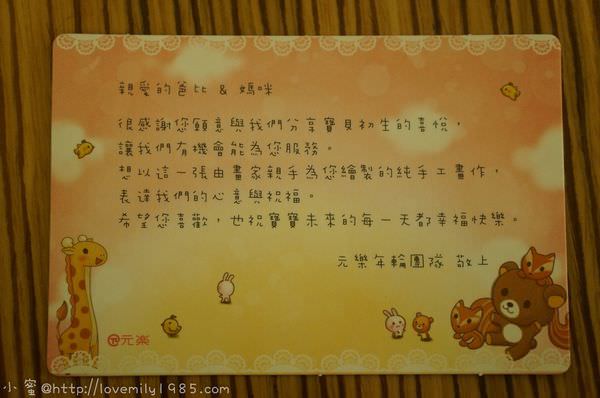 親愛的爸比 & 媽咪
很感謝您願意與我們分享寶貝初生的喜悅，
讓我們有機會能為您服務。
想以這一張由畫家親手為您繪製的純手工畫作，
表達我們的心意與祝福。
希望您喜歡，也祝寶寶未來的每一天都幸福快樂。
元樂年輪團隊 敬上
元楽
小蜜@http://lovemily1985.com/